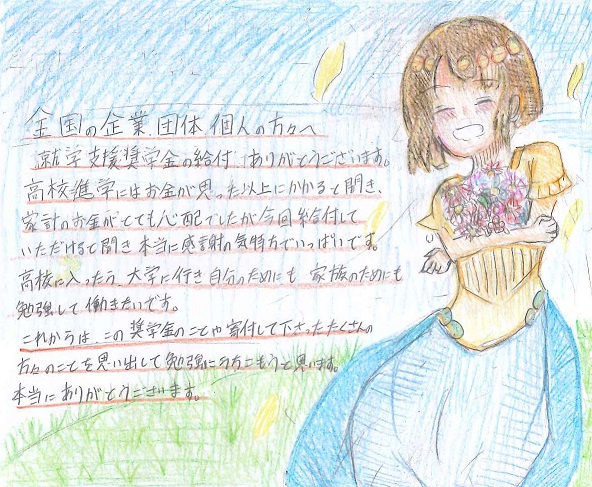 全国の企業、団体、個人の方々へ
就学支援奨学金の給付、ありがとうございます。
高校進学にはお金が思った以上にかかると聞き、
家計のお金がとても心配でしたが今回給付して
いただけると聞き本当に感謝の気持ちでいっぱいです。
高校に入ったら、大学に行き自分のためにも 家族のためにも
勉強して働きたいです。
これからは、この奨学金のことや寄付して下さったたくさんの
方々のことを思い出して勉強にうちこもうと思います。
本当にありがとうございます。